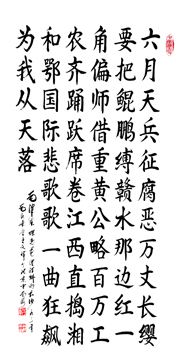 六月天兵征腐恶万丈长缨
要把鲲鹏缚赣水那边红一
角偏师借重黄公略百万工
农齐踊跃席卷江西直捣湘
和鄂国际悲歌歌一曲狂飙
为我从天落
毛泽东